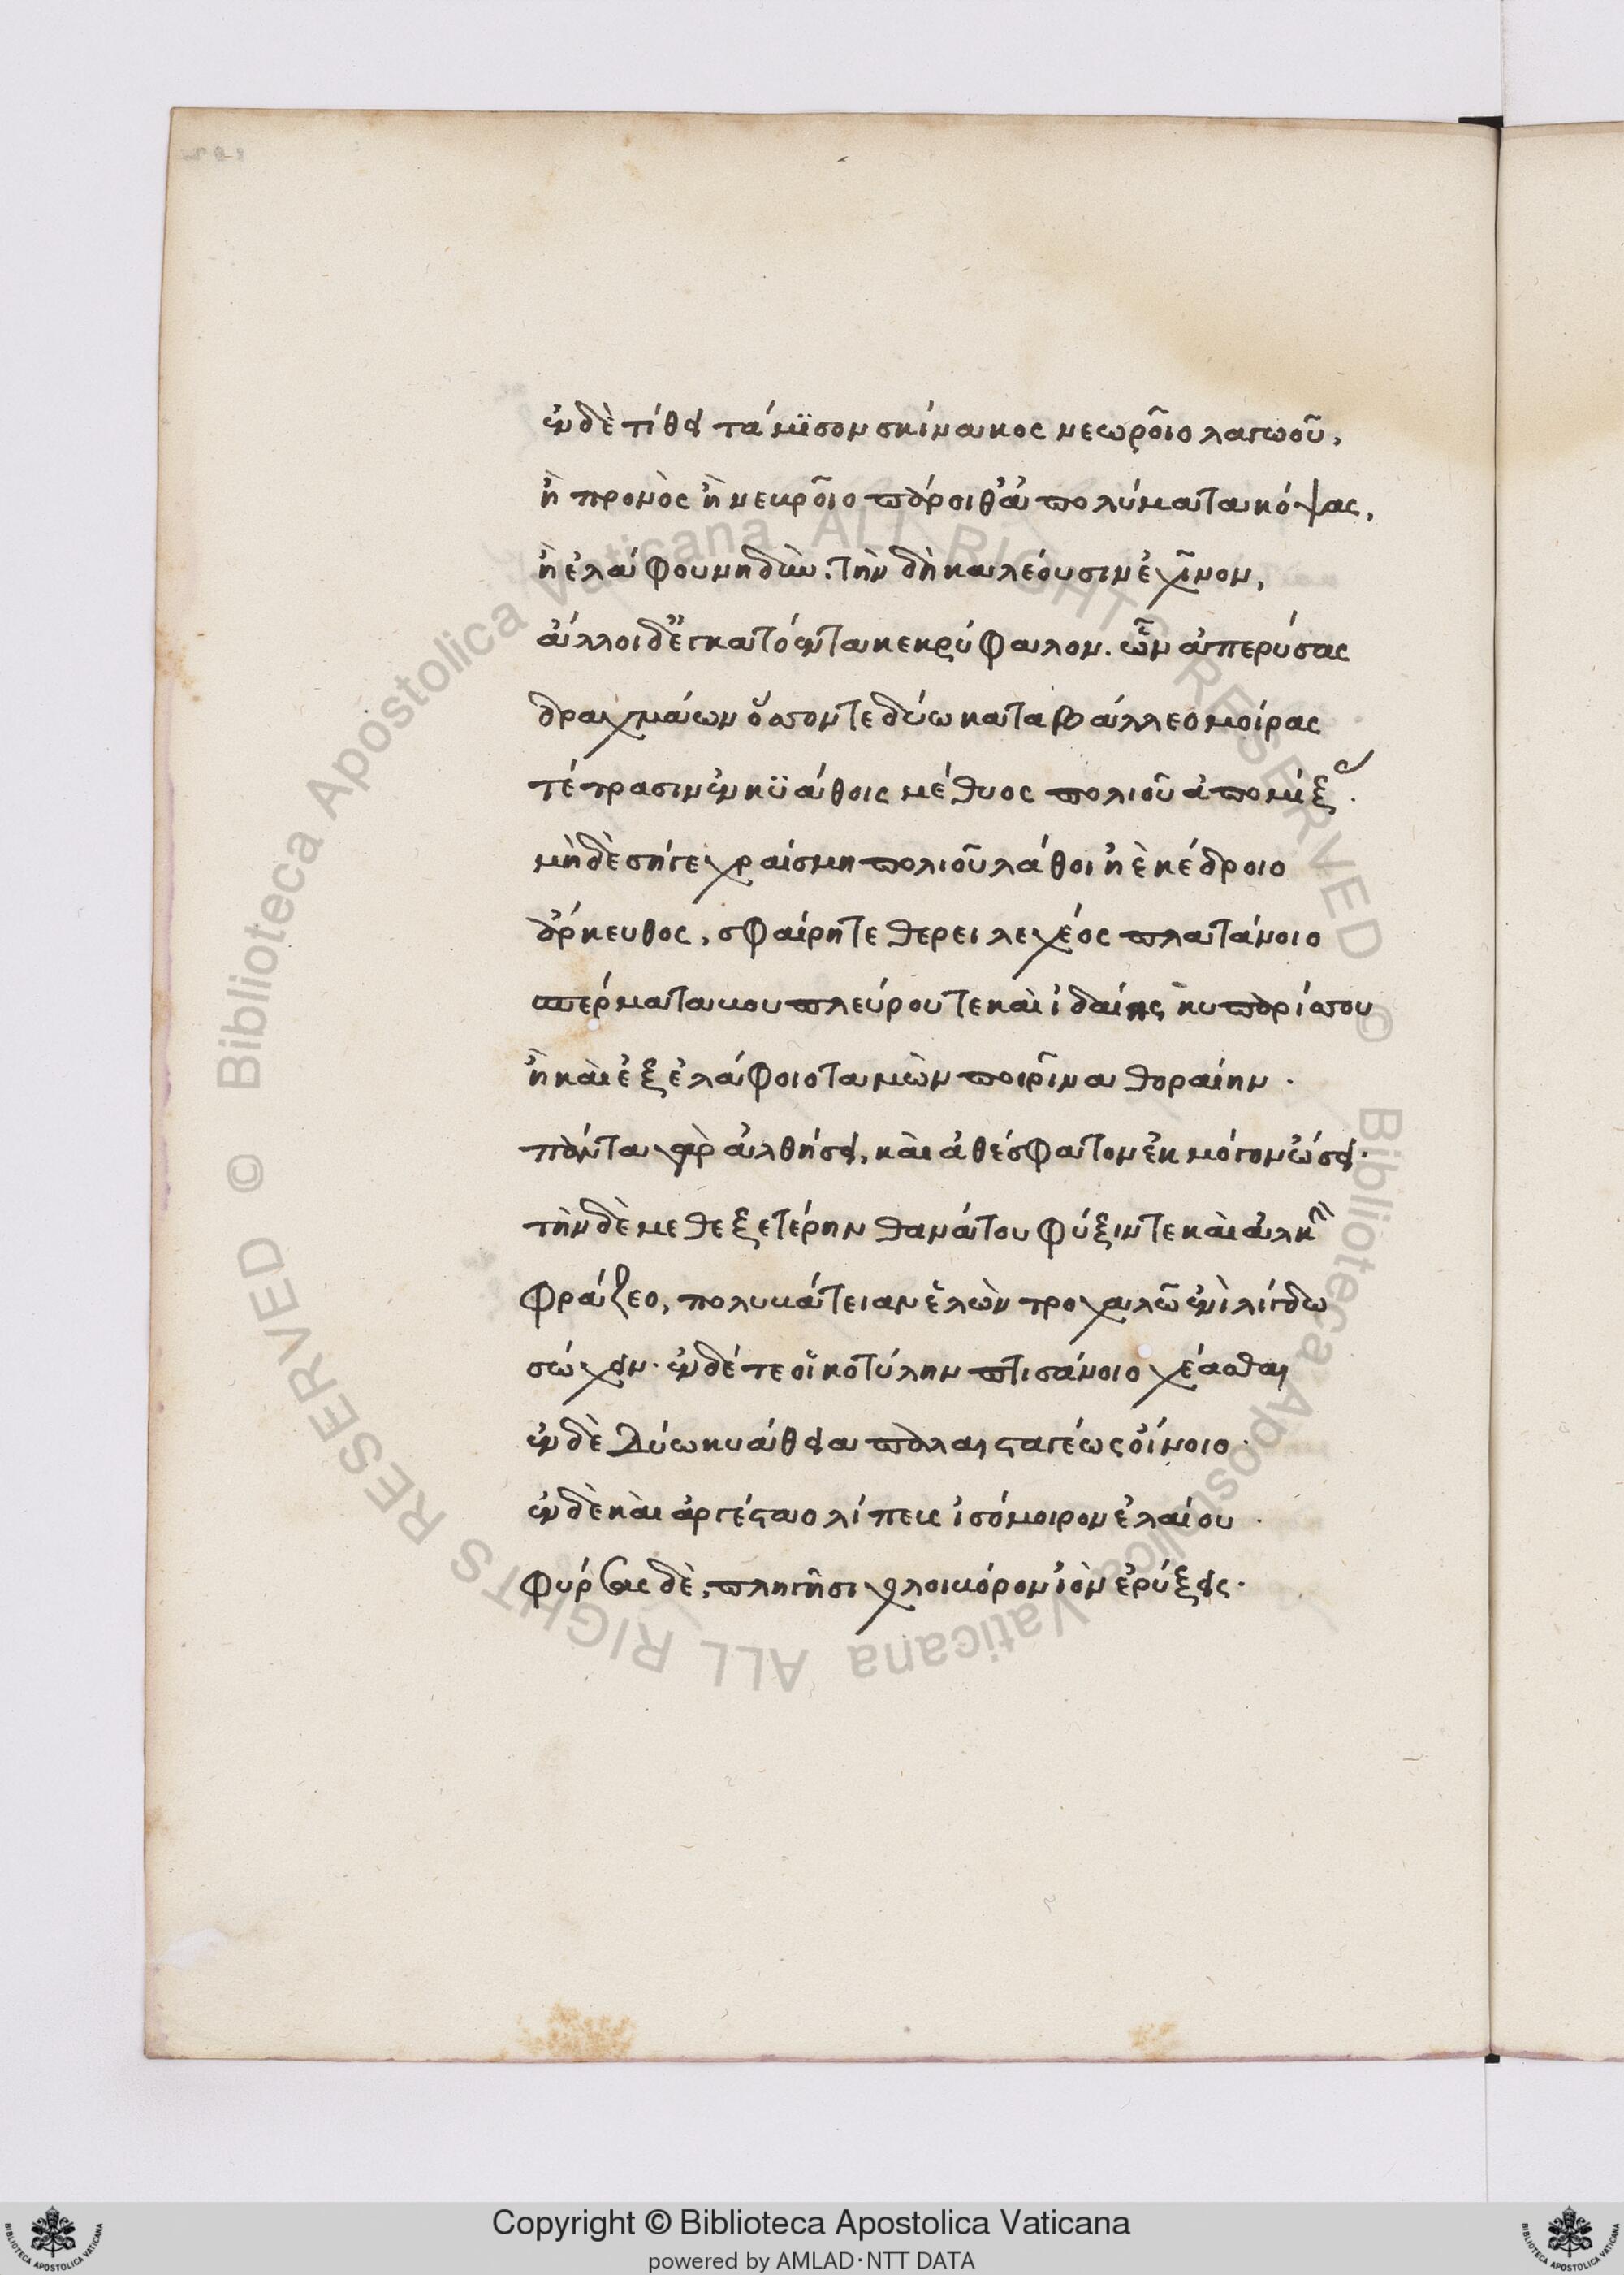 ἐν δὲ τίθει τάμισον σκίνακος νεαροῖο λαγωοῦ,
ἢ προκὸς ἢ νεκροῖο πάροιθ' ἀπολύματα κόψας,
ἢ ἐλάφου νηδὺν. τὴν δὴ καλέουσιν ἐχῖνον,
ἄλλοι δ' ἔγκατόεντα κεκρύφαλον. ὧν ἀπερύσας
δραχμάων ὅσον τε δύω καταβάλλεο μοίρας
τέτρασιν ἐν κϋάθοις μέθυος πολιοῦ ἀπομίξας.
μηδὲ σήγε χραίσμη πολιοῦ λάθοι ἠὲ κέδροιο
ἄρκευθος, σφαίρη τε θερειλεχέος πλατάνοιο
σπέρματα κουπλεύρου τε καὶ ἰδαίης κυπαρίσσου
ἢ καὶ ἐξ ἐλάφοιο ταμὼν ποιρῖνα θοραίην.
πάντα γὰρ ἀλθήσει, καὶ ἀθέσφατον ἐκ μόγον ὤσει.
τὴν δὲ μεθεξετέρην θανάτου φύξιν τε καὶ ἀλκὴν
φράζεο, πουλυκάτειαν ἑλὼν τροχαλῶ ἐνὶ λίγδω
σώχειν. ἐν δέ τέ οἱ κοτύλην πτισάνοιο χέασθαι
ἐν δὲ δύω κυάθεια παλαισταγέως οἴνοιο.
ἐν δὲ καὶ ἀργέσταο λίπευς ἰσόμοιρον ἐλαίου.
φύρσας δὲ, πληγῆσι χλοικόρον ἰὸν ἐρύξεις.
Copyright © Biblioteca Apostolica Vaticana
powered by AMLAD·NTT DATA